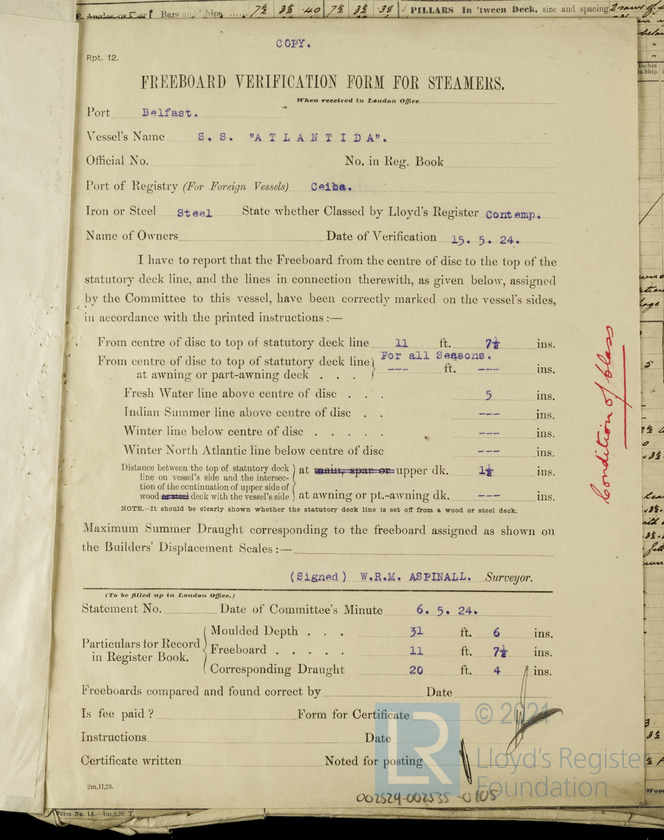 PILLARS In 'tween Deck, size and spacing
COPY.
Rpt. 12.
FREEBOARD VERIFICATION FORM FOR STEAMERS.
When received in London Office
Port Belfast.
Vessel's Name S. S. "A T L A N T I D A".
Official No. No. in Reg. Book
Port of Registry (For Foreign Vessels) Ceiba.
Iron or Steel Steel State whether Classed by Lloyd's Register Contemp.
Name of Owners Date of Verification 15. 5. 24.
I have to report that the Freeboard from the centre of disc to the top of the
statutory deck line, and the lines in connection therewith, as given below, assigned
by the Committee to this vessel, have been correctly marked on the vessel's sides,
in accordance with the printed instructions :—
From centre of disc to top of statutory deck line 11 ft. 7½ ins.
For all Seasons.
From centre of disc to top of statutory deck line
at awning or part-awning deck . . . --- ft. --- ins.
Fresh Water line above centre of disc . . . 5 ins.
Indian Summer line above centre of disc . . --- ins.
Winter line below centre of disc . . . . . --- ins.
Winter North Atlantic line below centre of disc --- ins.
Distance between the top of statutory deck
line on vessel's side and the intersec-
tion of the continuation of upper side of
wood or steel deck with the vessel's side
at main, spar or upper dk. 1½ ins.
at awning or pt.-awning dk. --- ins.
NOTE.—It should be clearly shown whether the statutory deck line is set off from a wood or steel deck.
Maximum Summer Draught corresponding to the freeboard assigned as shown on
the Builders' Displacement Scales :—
(Signed) W.R.M. ASPINALL. Surveyor.
(To be filled up in London Office.)
Statement No. Date of Committee's Minute 6. 5. 24.
Particulars for Record
in Register Book.
Moulded Depth . . . 31 ft. 6 ins.
Freeboard . . . . . 11 ft. 7½ ins.
Corresponding Draught 20 ft. 4 ins.
Freeboards compared and found correct by Date
Is fee paid ? Form for Certificate
Instructions Date
Certificate written Noted for posting
2m,11,23.
Condition of Class
© 2021
LR
Lloyd's Register
Foundation
002524-002535-0105
Form No. 1A.